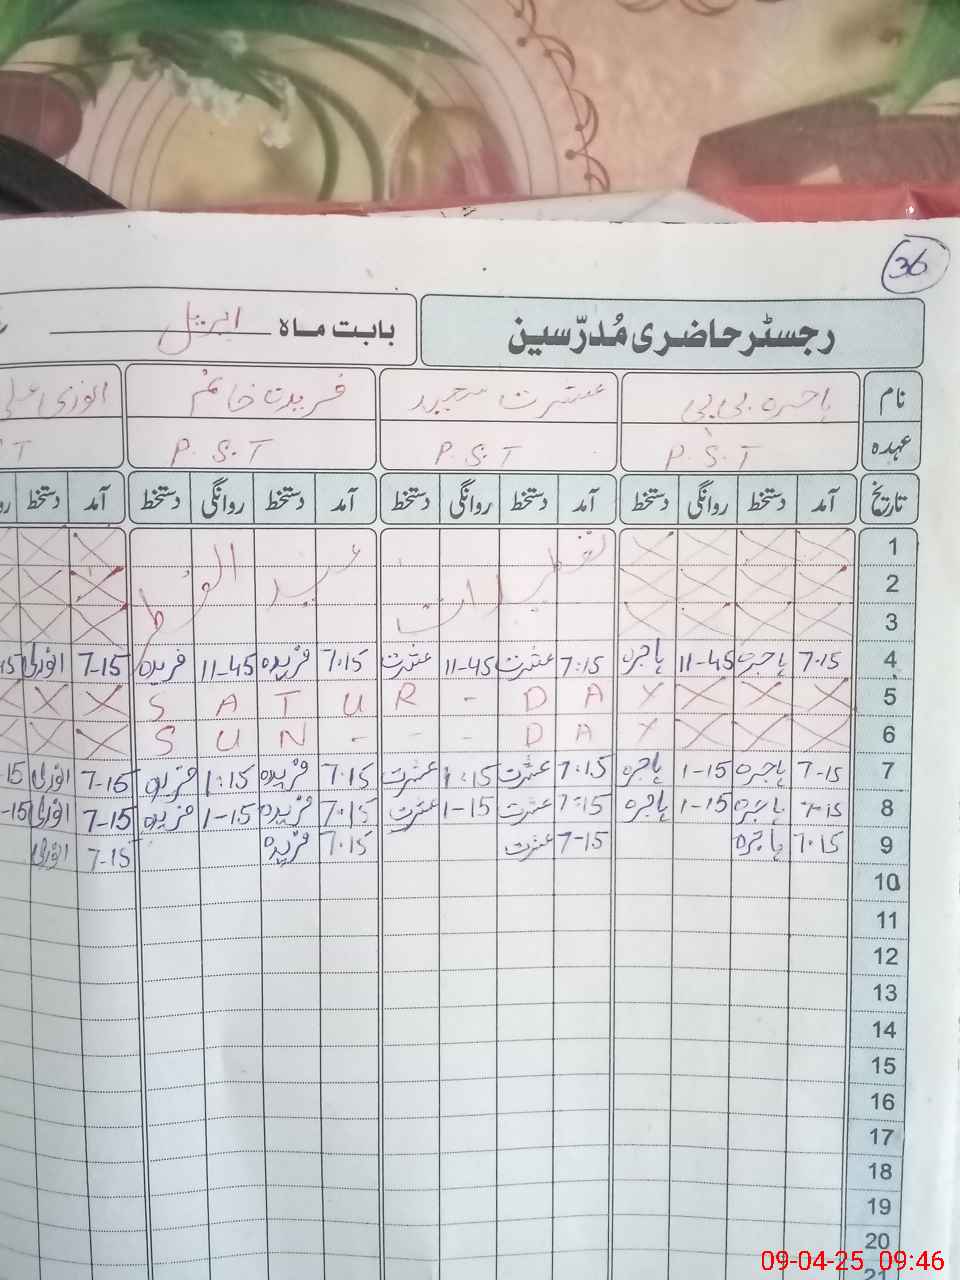 36
رجسٹر حاضری مُدرّسین
بابت ماہ اپریل
نام ہاجرہ بی بی عشرت مجید فریدہ خانم
عہدہ P.S.T P.S.T P.S.T
تاریخ آمد دستخط روانگی دستخط آمد دستخط روانگی دستخط آمد دستخط روانگی دستخط آمد دستخط
1 تعطیلات عید الفطر
2
3
4 7.15 ہاجرہ 11-45 ہاجرہ 7:15 عشرت 11-45 عشرت 7:15 فریدہ 11-45 فریدہ 7-15
5 SATUR-DAY
6 SUN---DAY
7 7-15 ہاجرہ 1-15 ہاجرہ 7:15 عشرت 1:15 عشرت 7:15 فریدہ 1:15 فریدہ 7-15
8 7-15 ہاجرہ 1-15 ہاجرہ 7:15 عشرت 1-15 عشرت 7:15 فریدہ 1-15 فریدہ 7-15
9 7.15 ہاجرہ 7-15 عشرت 7.15 فریدہ 7-15
10
11
12
13
14
15
16
17
18
19
20
21
09-04-25 09:46